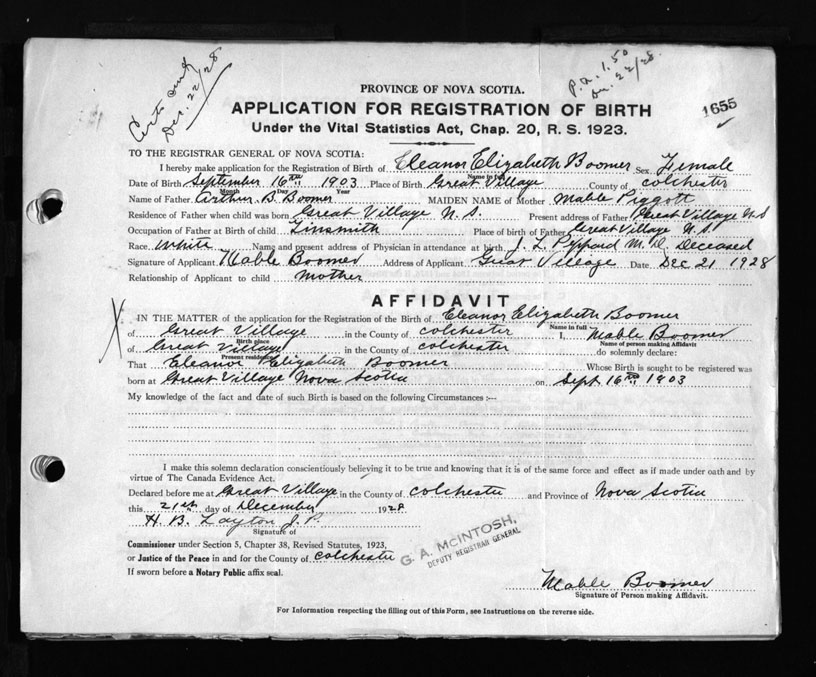 Certe sent
Dec. 22/28
P.a. 1.50
Dec. 22/28.
1655
PROVINCE OF NOVA SCOTIA.
APPLICATION FOR REGISTRATION OF BIRTH
Under the Vital Statistics Act, Chap. 20, R. S. 1923.
TO THE REGISTRAR GENERAL OF NOVA SCOTIA:
I hereby make application for the Registration of Birth of Eleanor Elizabeth Boomer Sex Female
Name in full
Date of Birth September 16th 1903 Place of Birth Great Village County of Colchester
Month Day Year
Name of Father Arthur B. Boomer MAIDEN NAME of Mother Mable Piggott
Residence of Father when child was born Great Village N. S. Present address of Father Great Village N S
Occupation of Father at Birth of child Tinsmith Place of birth of Father Great Village N. S.
Race White Name and present address of Physician in attendance at birth J. L. Peppard M. D. Deceased
Signature of Applicant Mable Boomer Address of Applicant Great Village Date Dec 21 1928
Relationship of Applicant to child Mother
AFFIDAVIT
X
IN THE MATTER of the application for the Registration of the Birth of Eleanor Elizabeth Boomer
Name in full
of Great Village in the County of Colchester I, Mable Boomer
Birth place Name of person making Affidavit
of Great Village in the County of Colchester do solemnly declare:
Present residence
That Eleanor Elizabeth Boomer Whose Birth is sought to be registered was
born at Great Village Nova Scotia on Sept 16th 1903
My knowledge of the fact and date of such Birth is based on the following Circumstances :—
I make this solemn declaration conscientiously believing it to be true and knowing that it is of the same force and effect as if made under oath and by
virtue of The Canada Evidence Act.
Declared before me at Great Village in the County of Colchester and Province of Nova Scotia
this 21st day of December 1928
H. B. Layton J. P.
Signature of
Commissioner under Section 5, Chapter 38, Revised Statutes, 1923,
or Justice of the Peace in and for the County of Colchester
If sworn before a Notary Public affix seal.
G. A. McINTOSH,
DEPUTY REGISTRAR GENERAL
Mable Boomer
Signature of Person making Affidavit.
For Information respecting the filling out of this Form, see Instructions on the reverse side.